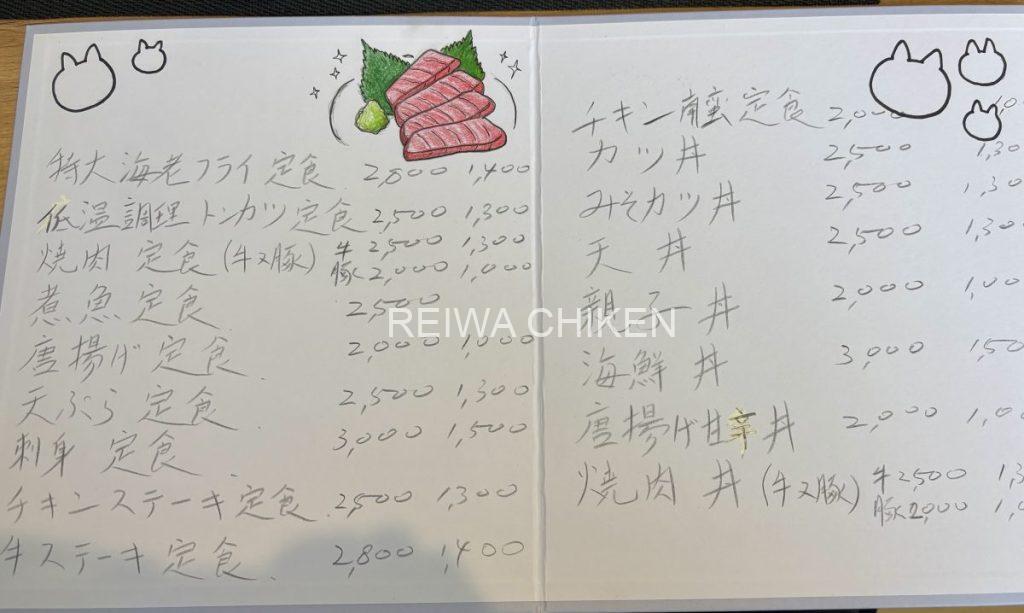 特大海老フライ定食 2,800 1,400
低温調理トンカツ定食 2,500 1,300
焼肉 定食 (牛又豚) 牛 2,500 1,300
豚 2,000 1,000
煮魚定食 2,500
唐揚げ定食 2,000 1,000
天ぷら定食 2,500 1,300
刺身 定食 3,000 1,500
チキンステーキ定食 2,500 1,300
牛ステーキ定食 2,800 1,400
チキン南蛮定食 2,000
カツ丼 2,500 1,30
みそカツ丼 2,500 1,30
天 丼 2,500 1,30
親子丼 2,000 1,00
海鮮丼 3,000 1,50
唐揚げ甘辛丼 2,000 1,0
焼肉 丼 (牛又豚) 牛 2500 1,3
豚 2,000 1,0
REIWA CHIKEN